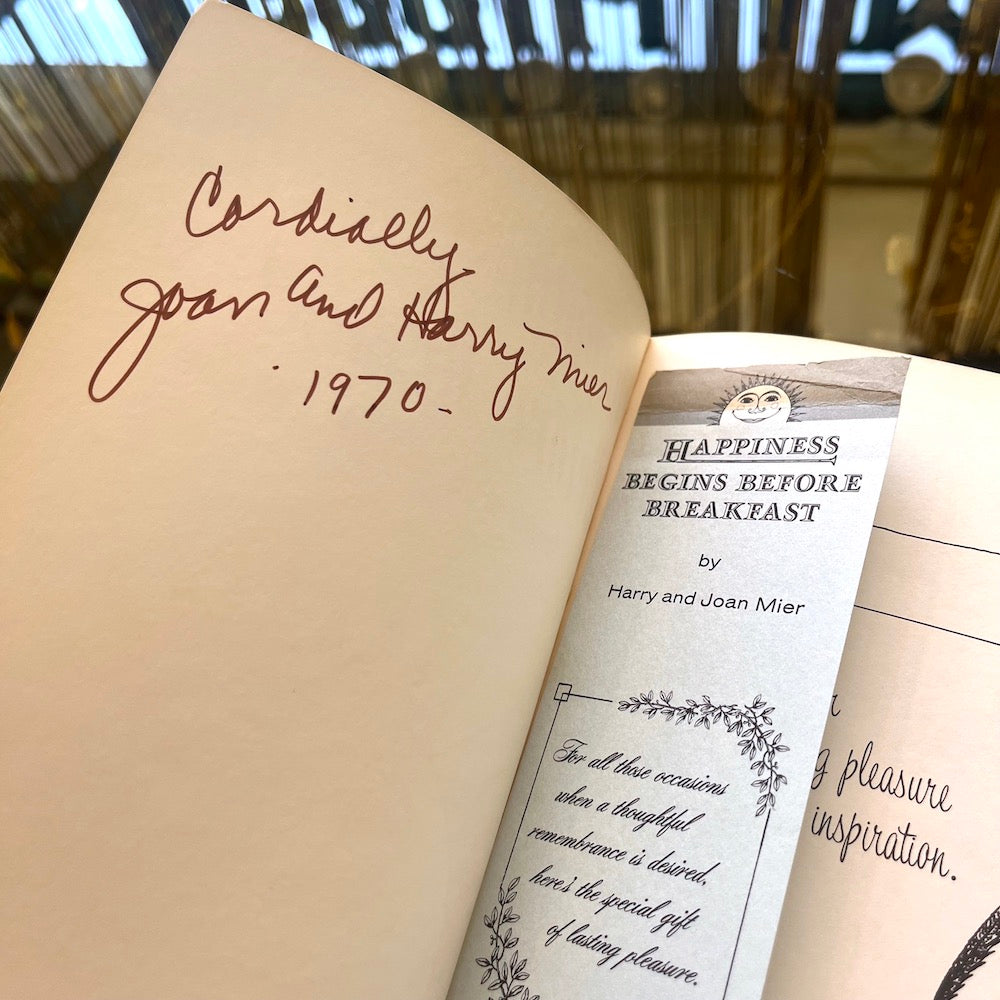 Cordially
Joan and Harry Mier
1970-
HAPPINESS
BEGINS BEFORE
BREAKFAST
by
Harry and Joan Mier
For all those occasions
when a thoughtful
remembrance is desired,
here's the special gift
of lasting pleasure.
pleasure
inspiration.